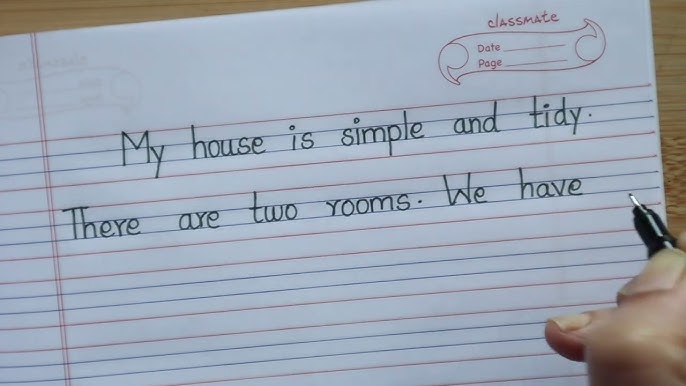 classmate
Date
Page
My house is simple and tidy.
There are two rooms. We have